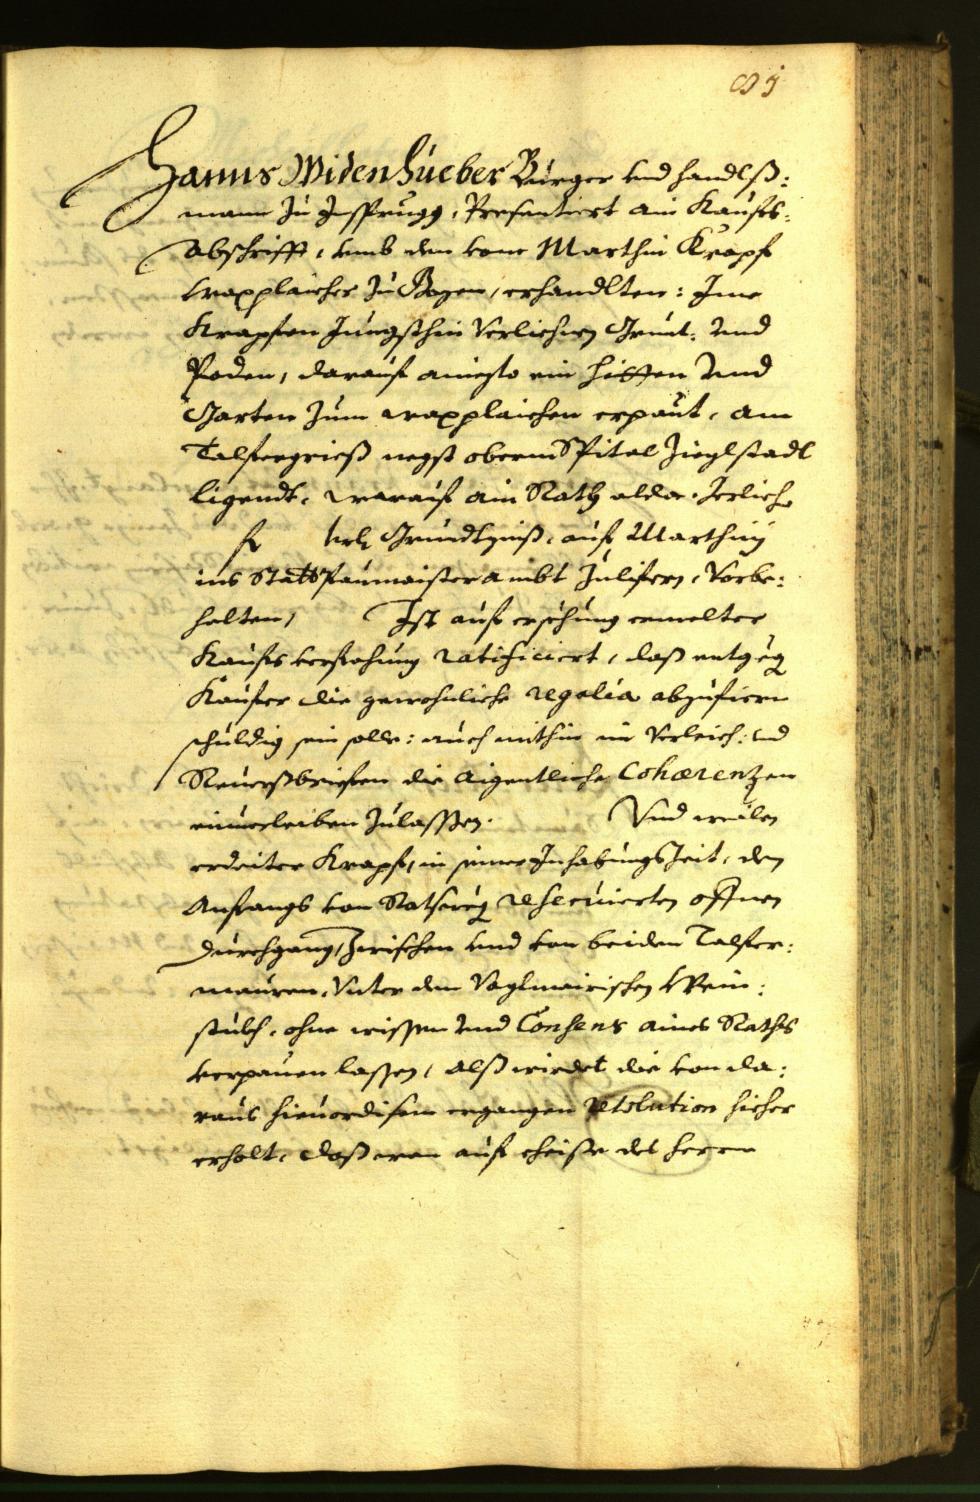 89
Hanns Widenhueber Burger und handlß:
mann zu Insprugg, Presentiert ain Kaufs:
abschrifft, umb den vone Marthin Krapf
wappplaicher zu Bozen, erhandlten: Ime
Krapfen Jungsthin verlichen Grunt: und
Poden, darauf aniezo ein hitten und
Garten zum wappplaichen erpaut, am
Talfergrieß negst oberm Spital Zieglstadl
ligendt, warauf ain Rath alda Jerliche
f kr Grundtzinß, auf Marthiny
ins Statt Paumaister ambt zulifern, Vorbe:
halten, Ist auf ersehung ermelter
Kaufs verfahung ratificiert, daß entgeg
Kaufer die gewohnliche regalia abzufiern
schuldig sein solle: auch mithin in Verleich: und
Reversbriefen die aigentliche Cohaerenzen
einverleiben zulassen. Und weilen
erdeiter Krapf, in seiner Inhabungszeit, den
Anfangs von Rats reservierten offnen
Durchgang, zwischen und von beiden Talfer:
mauren, Unter dem Voglmairischen Wein:
stubl, ohne wissen und Consens aines Raths
verpauen lassen, alß wirdet die von da:
raus hievordisem ergangen resolution hieher
erholt, daß man auf des herrn